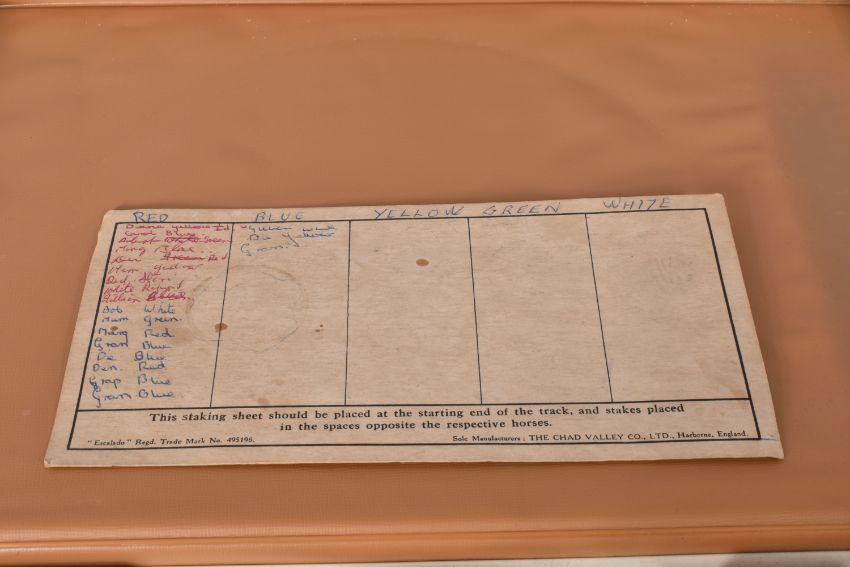 RED BLUE YELLOW GREEN WHITE
Diana Yellow
Carol Blue.
Green
Marg Blue..
Red
Mam
Dad
White
Gillian
Bob White
Mam Green.
Marg Red
Gran Blue
De Blue
Den. Red
Grap Blue
Gran Blue.
Gillian
Yellow
Gran.
This staking sheet should be placed at the starting end of the track, and stakes placed
in the spaces opposite the respective horses.
"Escalado" Regd. Trade Mark No. 495196.
Sole Manufacturers: THE CHAD VALLEY CO., LTD., Harborne, England.